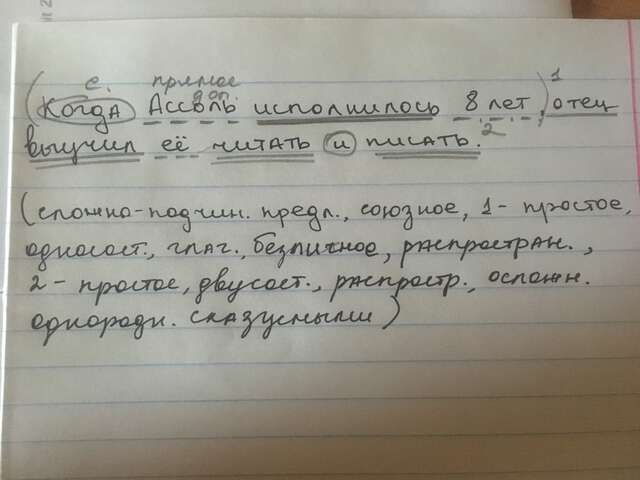 с. прямое
доп.
(Когда Ассоль исполнилось 8 лет)¹, отец
выучил её читать и писать.²
(сложно-подчин. предл., союзное, 1 - простое,
односост., глаг., безличное, распростран.,
2 - простое, двусост., распростр., осложн.
однородн. сказуемыми)